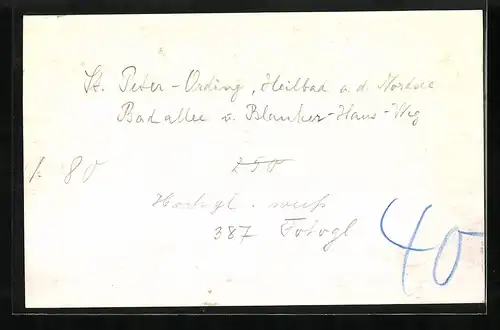 St. Peter-Ording, Heilbad a. d. Nordsee
Badallee u. Blanker-Hans-Weg
1. 80 250
Hochgl. weiß
387 Fotogl
40